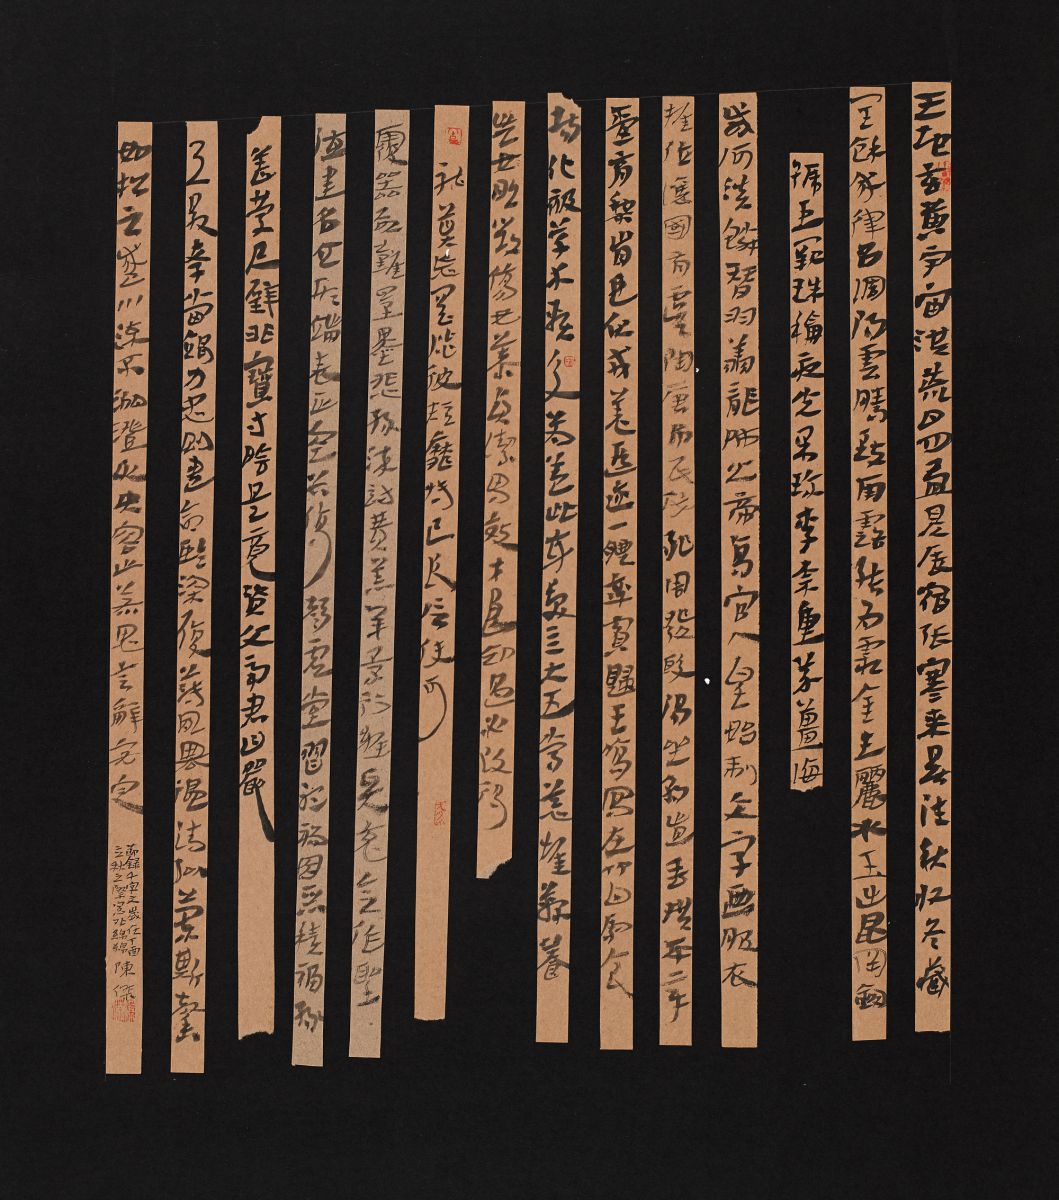 天地玄黃宇宙洪荒日月盈昃辰宿張寒來暑往秋收冬藏
閏餘成律呂調陽雲騰致雨露結為霜金生麗水玉出崑岡劍
號巨闕珠稱夜光果珍李柰重芥薑海
鹹河淡鱗潛羽翔龍師火帝鳥官人皇始制文字乃服衣
推位讓國有虞陶唐弔民伐罪周發殷湯坐朝問道垂拱平章
愛育黎首臣伏戎羌遐邇一體率賓歸王鳴鳳在竹白駒食
場化被草木賴及萬蓋此身髮四大五常恭惟鞠養
豈敢毀傷女慕貞潔男效才良知過必改得
能莫忘罔談彼短靡恃己長信使可
覆器欲難量墨悲絲染詩讚羔羊景行維賢克念作聖
德建名立形端表正空谷傳聲虛堂習聽禍因惡積福緣
善慶尺璧非寶寸陰是競資父事君曰嚴
與敬孝當竭力忠則盡命臨深履薄夙興溫凊似蘭斯馨
如松之盛川流不息淵澄取映容止若思言辭安定
節錄千字文歲在丁酉
立秋之際寫於 陳